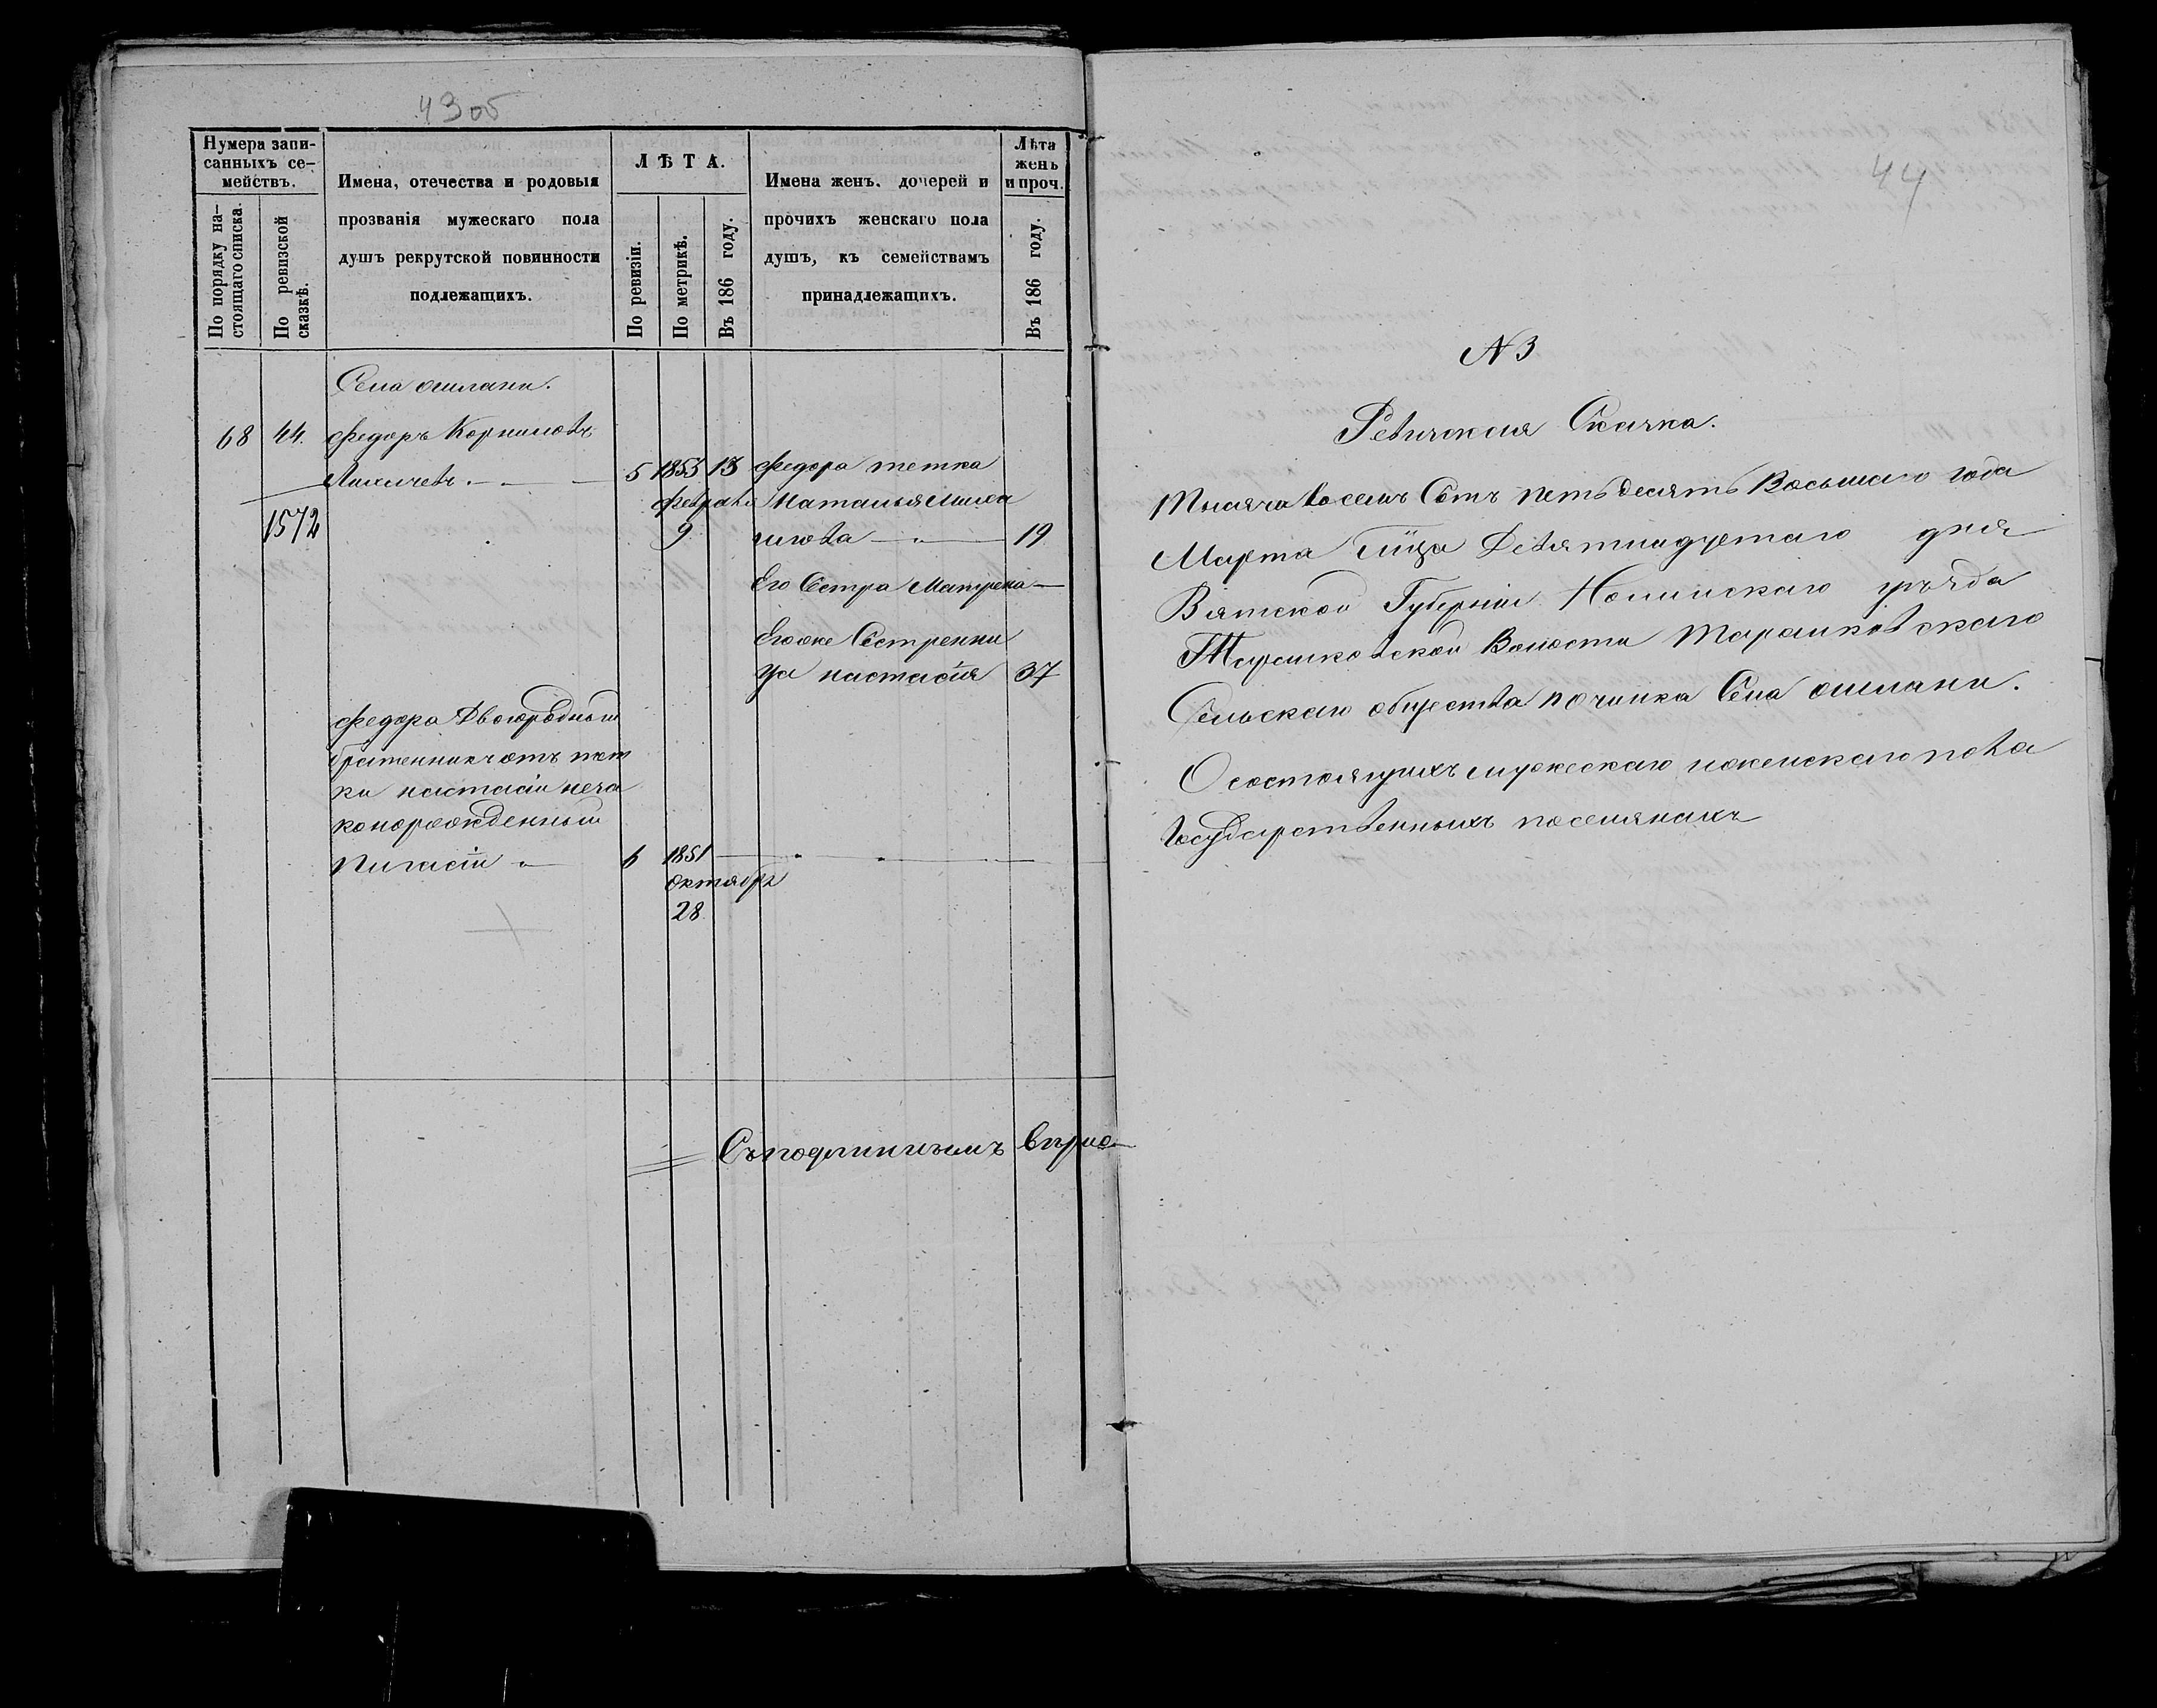 43об
Нумера запи-
санныхъ се-
мействъ.
По порядку на-
стоящаго списка.
По ревизской
сказкѣ.
Имена, отечества и родовыя
прозванія мужескаго пола
душъ рекрутской повинности
подлежащихъ.
ЛѢТА.
По ревизіи.
По метрикѣ.
Въ 186 году.
Имена женъ, дочерей и
прочихъ женскаго пола
душъ, къ семействамъ
принадлежащихъ.
Лѣта
женъ
и проч.
Въ 186 году.
Села ошлани.
68 44. Федоръ Корниловъ
5 1853 13 Федора тетка
Февраля Наталья Миха
1572
9 илова 19
Его Сестра Матрена
Егоже Сестренни
ца настасія 37
Федора Двоюродный
братенникъ отъ тет
ки настасіи неза
конорожденный
6 1851
Октября
28
Съ подлиннымъ вѣрно
44
№ 3
Ревизская Сказка.
Тысяча восемь Сотъ петьдесятъ Восьмаго года
Марта Девятнадцетаго дня
Вятской Губерніи Нолинскаго уѣзда
Сельскаго общества починка Села ошлани.
О состоящихъ мужескаго иженскаго пола
Государственныхъ поселянахъ